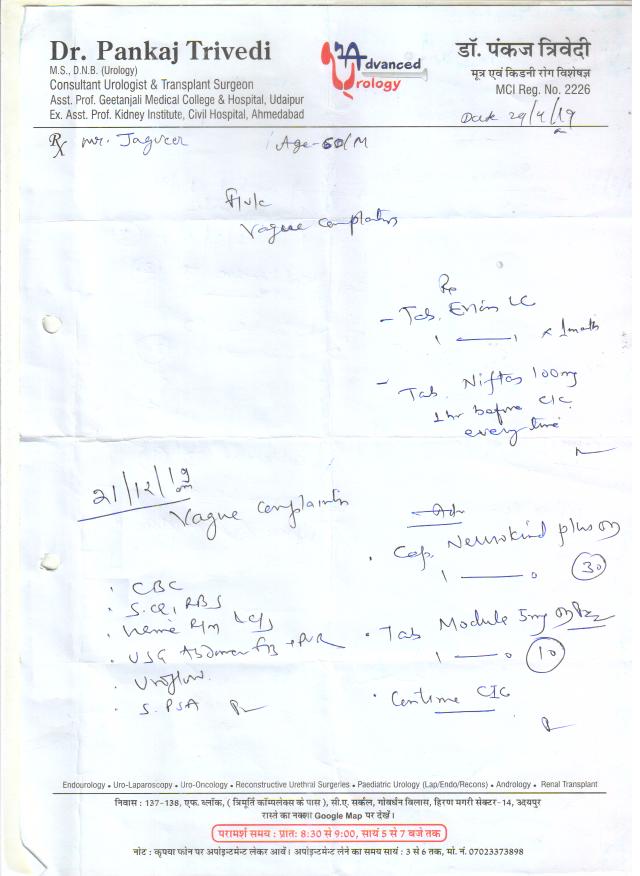 Dr. Pankaj Trivedi
M.S., D.N.B. (Urology)
Consultant Urologist & Transplant Surgeon
Asst. Prof. Geetanjali Medical College & Hospital, Udaipur
Ex. Asst. Prof. Kidney Institute, Civil Hospital, Ahmedabad
Advanced
Urology
डॉ. पंकज त्रिवेदी
मूत्र एवं किडनी रोग विशेषज्ञ
MCI Reg. No. 2226
Date 29/4/19
Rx Mr. Jagveer Age-60/M
Vague complaints
Rx
- Tab.
1 —— 1 x 1 month
- Tab. Niftas 100mg
1 hr before CIC
every time
21/12/19
Vague complaints
• CBC
• S.Cr, RBS
• Urine R/M & C/S
• USG Abdomen + PVR
• Uroflow
• S. PSA
Adv
• Cap. Neurokind plus
1 —— 0 30
• Tab Module 5mg
1 —— 0 10
• Continue CIC
Endourology • Uro-Laparoscopy • Uro-Oncology • Reconstructive Urethral Surgeries • Paediatric Urology (Lap/Endo/Recons) • Andrology • Renal Transplant
निवास : 137-138, एफ. ब्लॉक, ( त्रिमूर्ति कॉम्पलेक्स के पास ), सी.ए. सर्कल, गोवर्धन विलास, हिरण मगरी सेक्टर-14, उदयपुर
रास्ते का नक्शा Google Map पर देखें।
परामर्श समय : प्रातः 8:30 से 9:00, सायं 5 से 7 बजे तक
नोट : कृपया फोन पर अपांइन्टमेन्ट लेकर आवें। अपांइन्टमेन्ट लेने का समय सायं : 3 से 6 तक, मां. नं. 07023373898